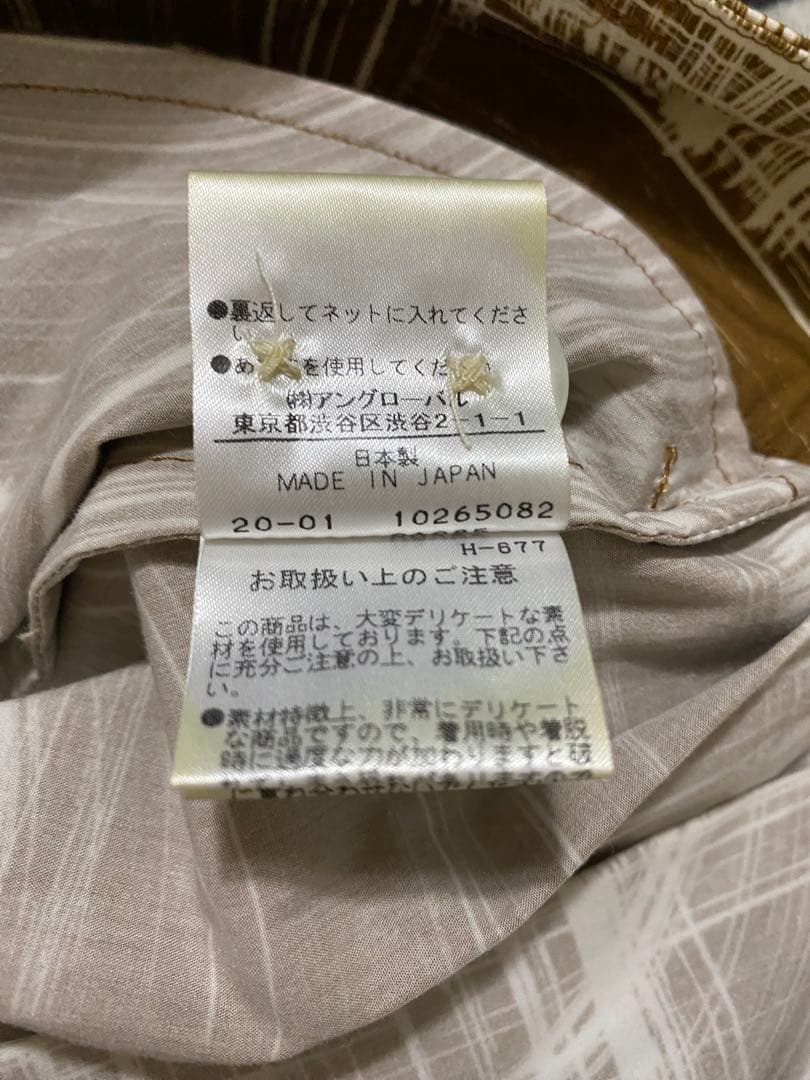 ●裏返してネットに入れてくださ
い
●あ を使用してくだ い
㈱アングローバル
東京都渋谷区渋谷2-1-1
日本製
MADE IN JAPAN
20-01 10265082
H-677
お取扱い上のご注意
この商品は、大変デリケートな素
材を使用しております。下記の点
に充分ご注意の上、お取扱い下さ
い。
●素材特徴上、非常にデリケート
な商品ですので、着用時や着脱
時に過度な力が加わりますと破